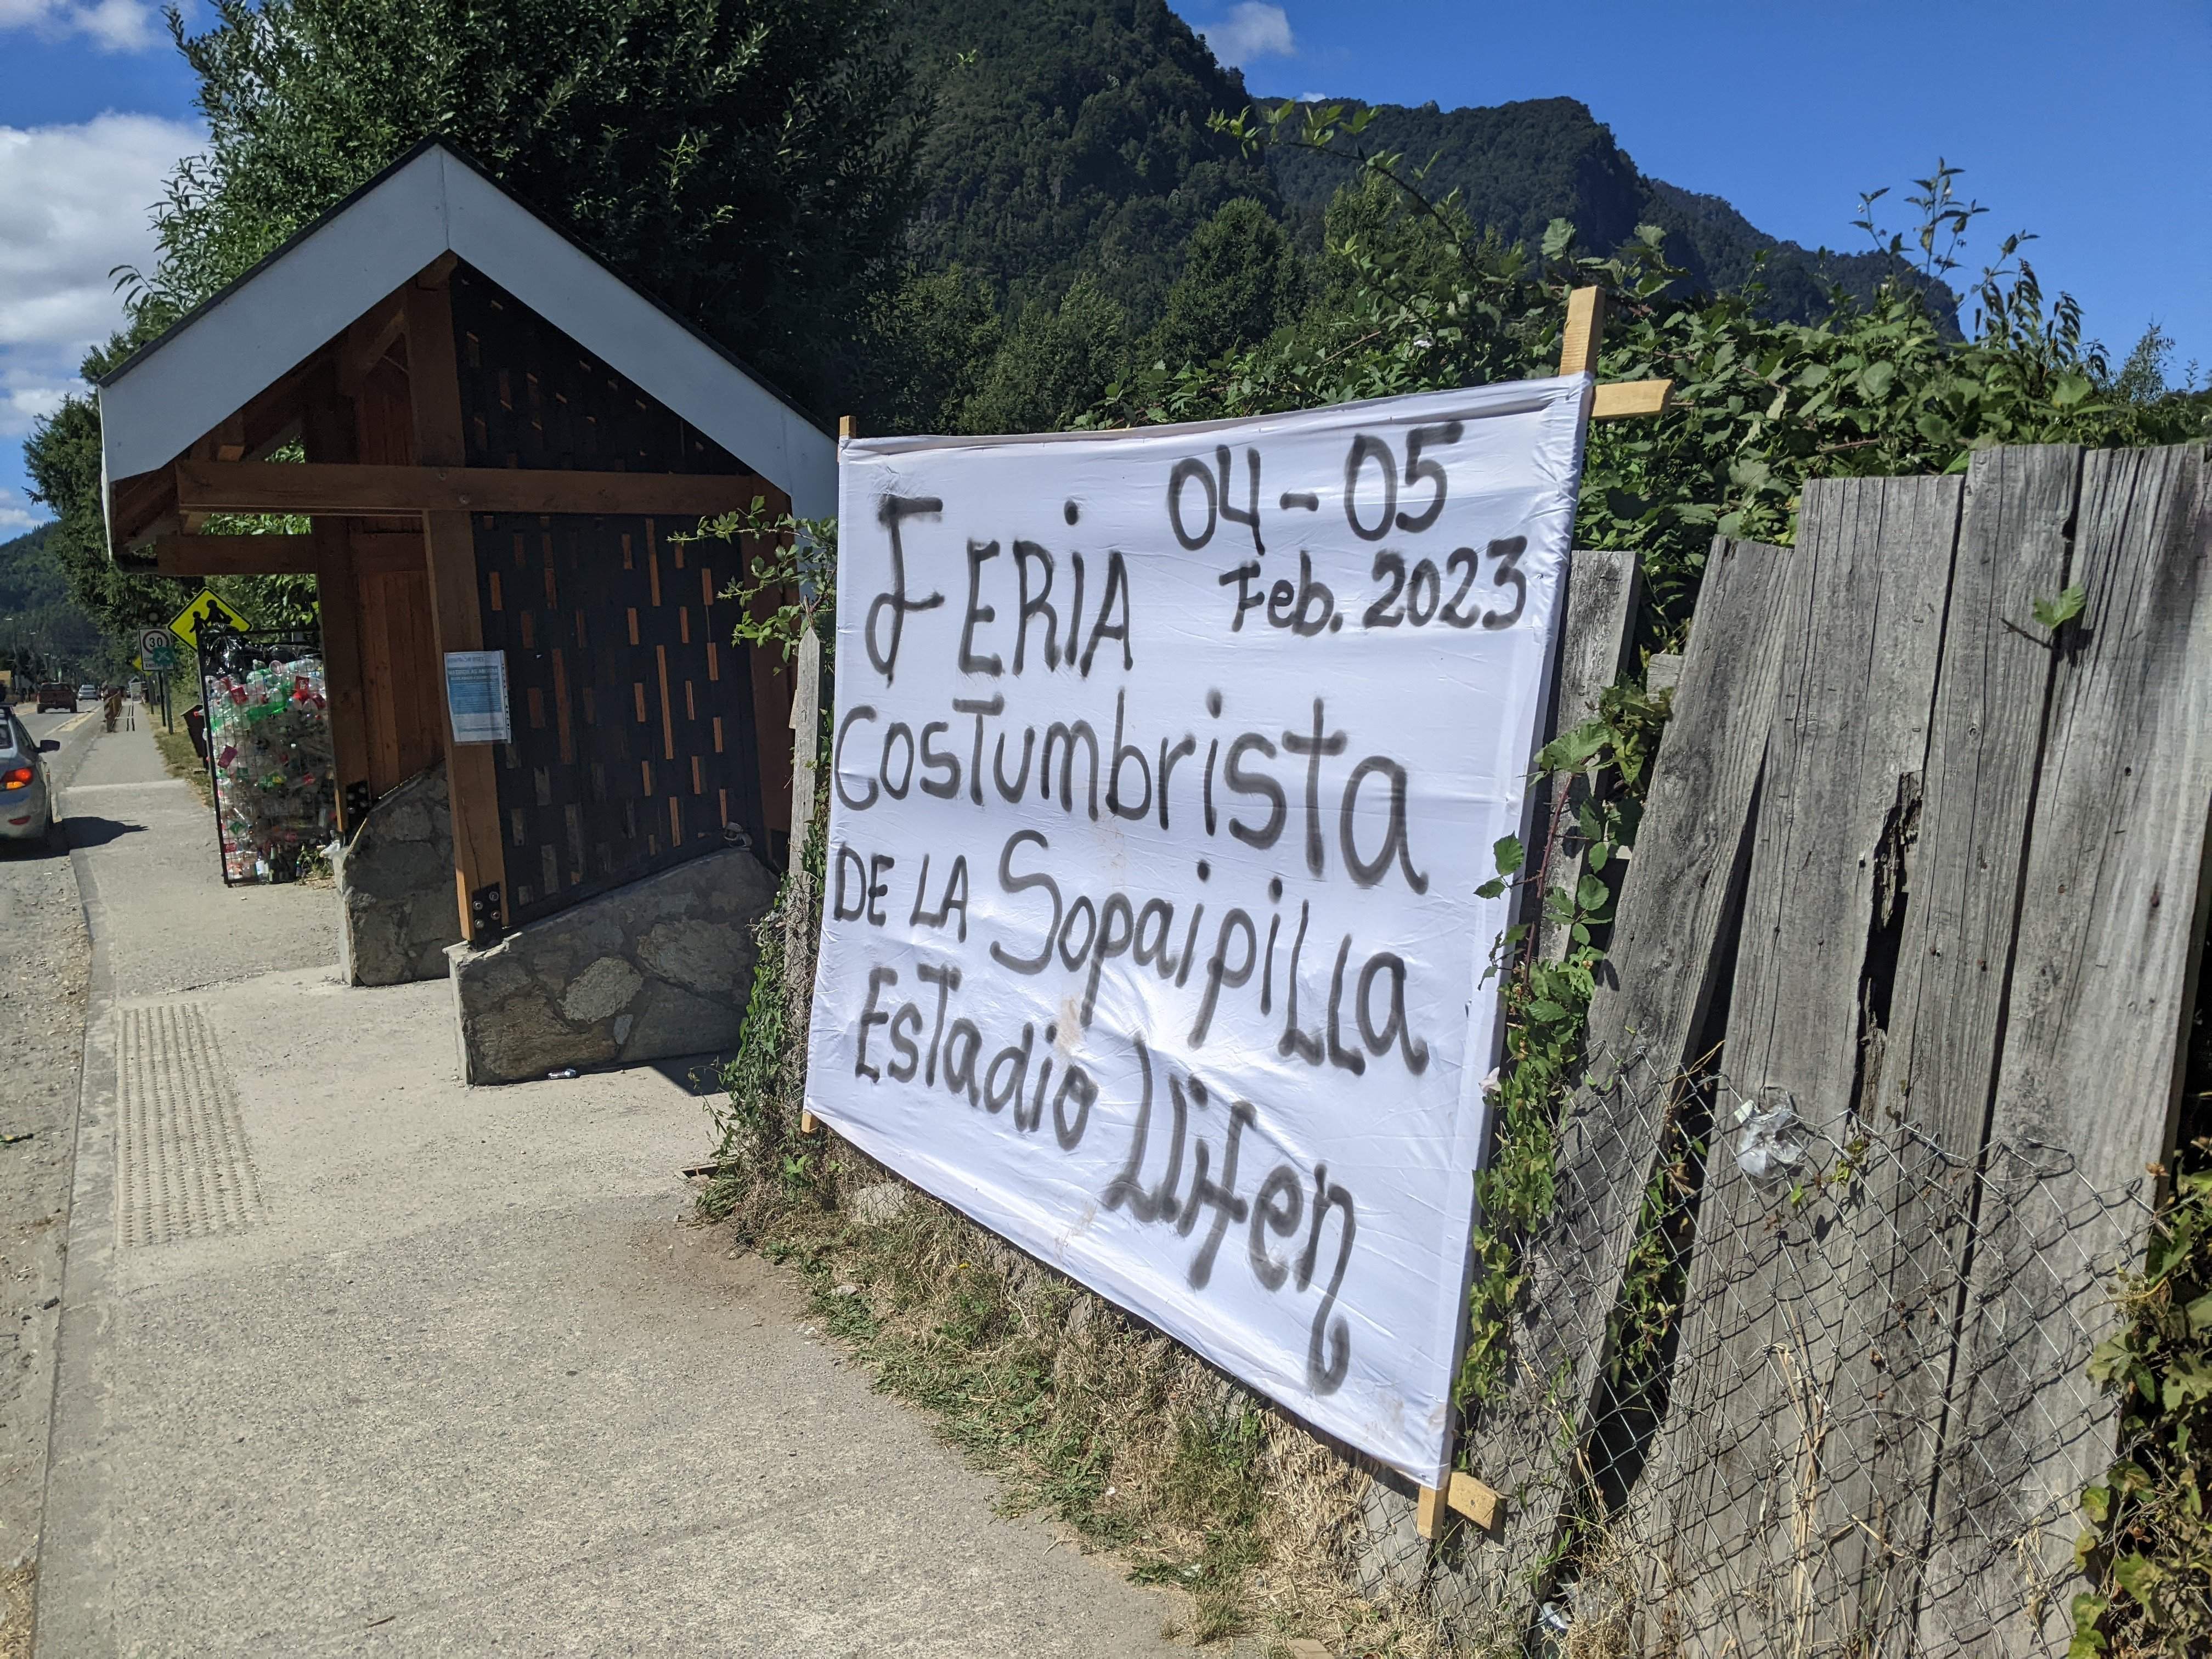 04-05
FERiA Feb. 2023
CosTumbrisTa
DE LA SopaipiLLa
EsTadio Llifen
30